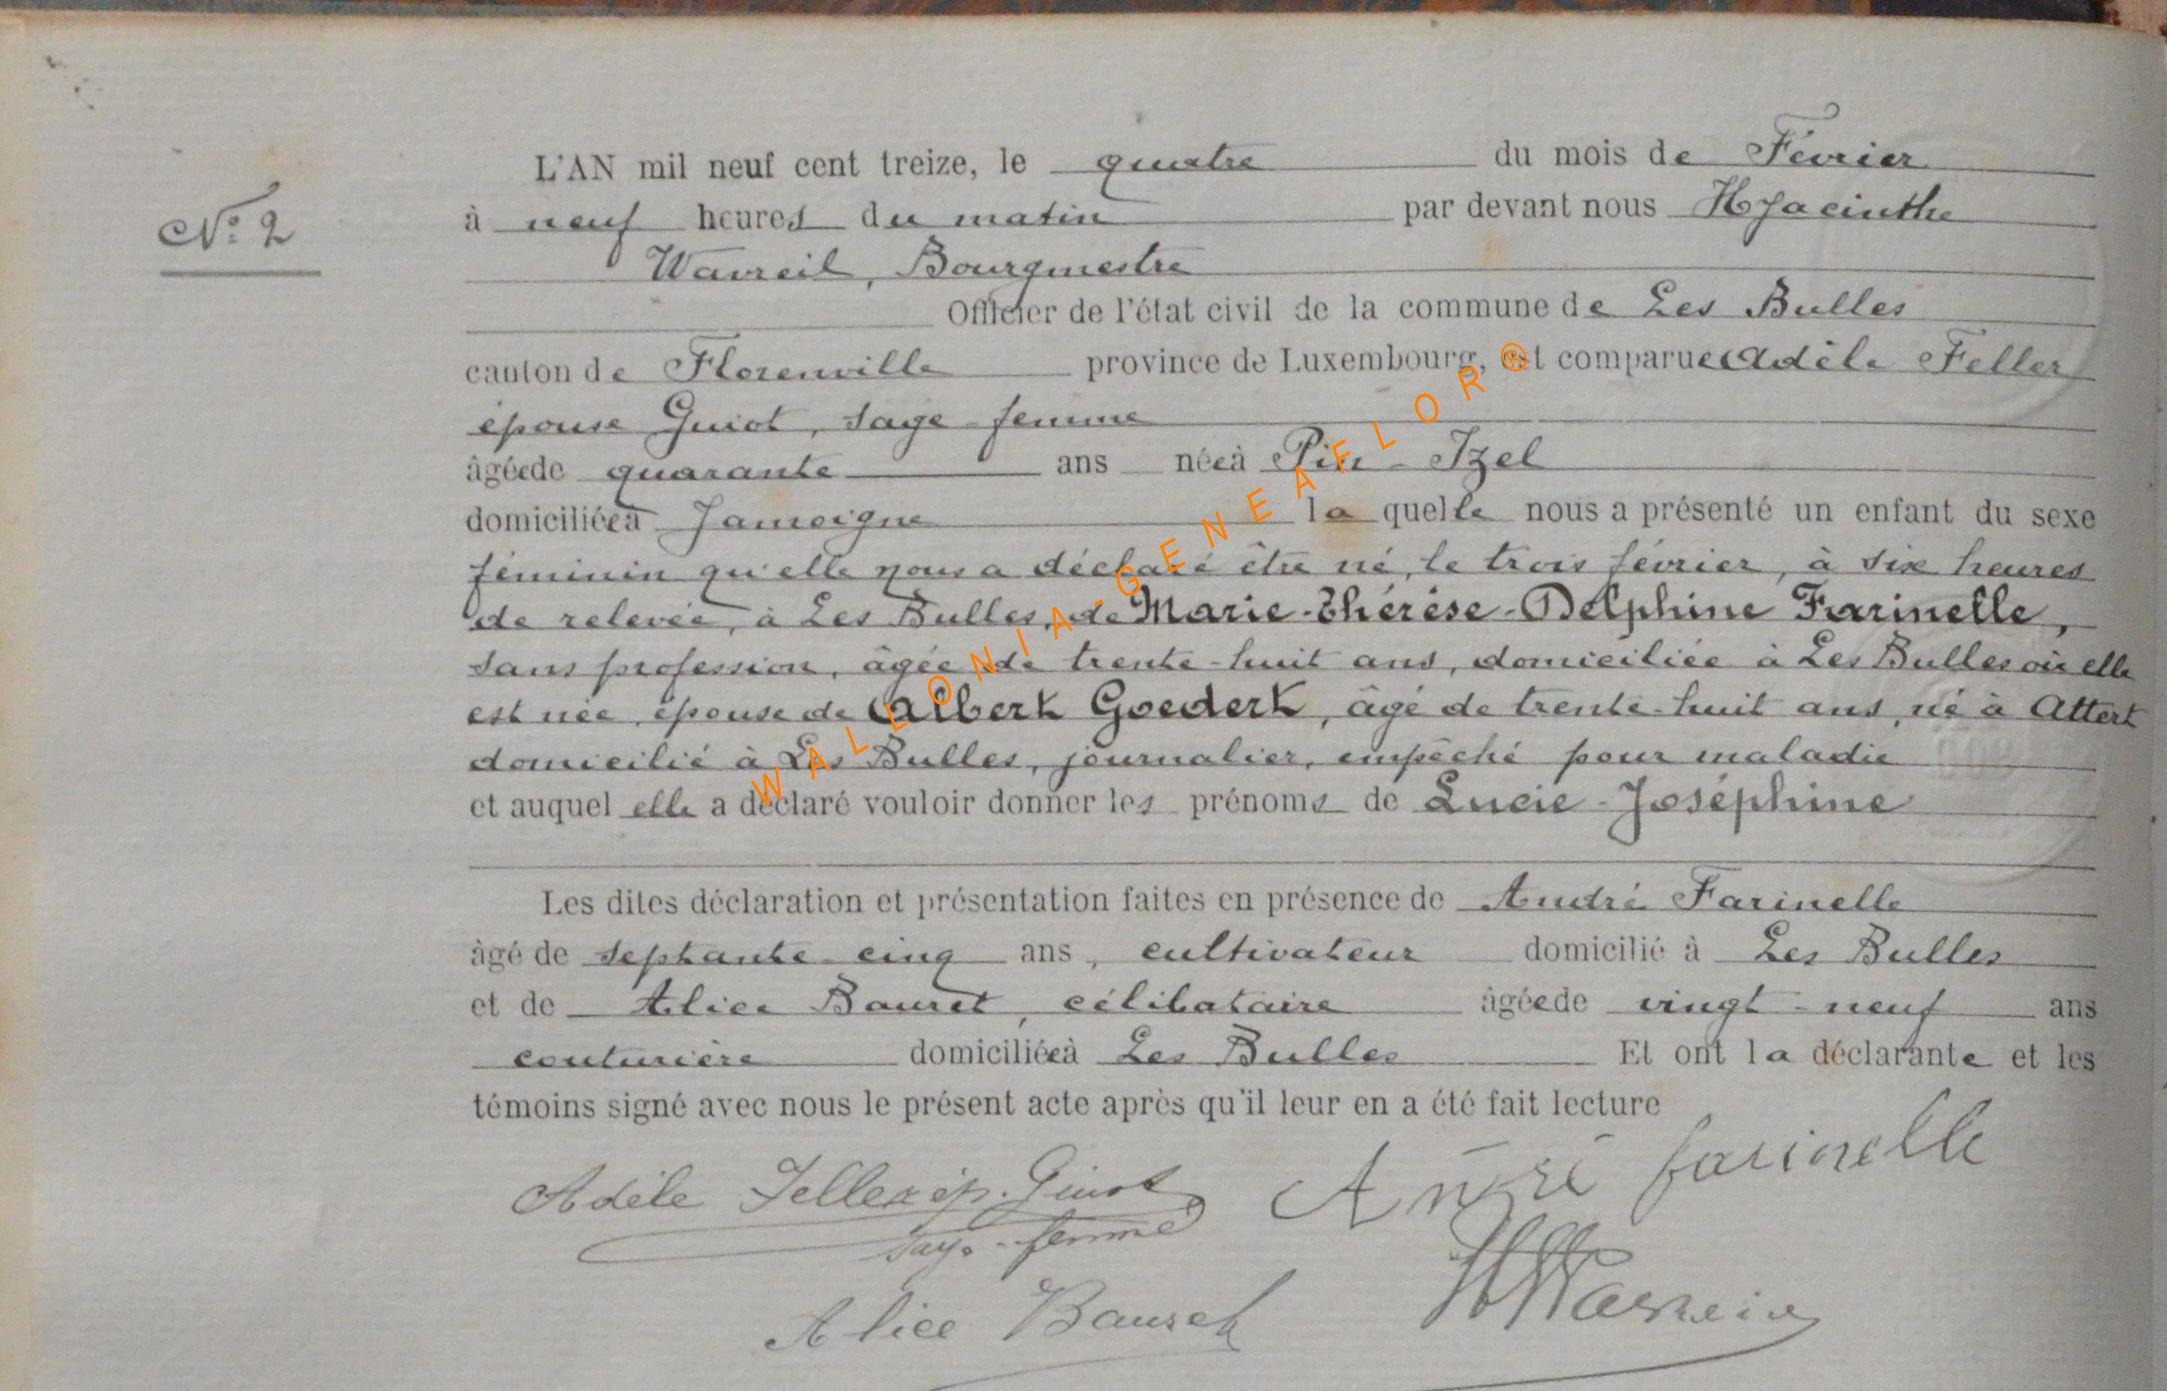 N° 2
L'AN mil neuf cent treize, le quatre du mois de Février
à neuf heures du matin par devant nous Hyacinthe
Wavreil, Bourgmestre
Officier de l'état civil de la commune de Les Bulles
canton de Florenville province de Luxembourg, est comparue Adèle Feller
épouse Guiot, sage-femme
âgée de quarante ans née à Pin-Izel
domiciliée à Jamoigne laquelle nous a présenté un enfant du sexe
féminin qu'elle nous a déclaré être né, le trois février, à six heures
de relevée, à Les Bulles, de Marie-Thérèse-Delphine Farinelle,
sans profession, âgée de trente-huit ans, domiciliée à Les Bulles où elle
est née, épouse de Albert Goedert, âgé de trente-huit ans, né à Attert
domicilié à Les Bulles, journalier, empêché pour maladie
et auquel elle a déclaré vouloir donner les prénoms de Lucie-Joséphine
Les dites déclaration et présentation faites en présence de André Farinelle
âgé de septante-cinq ans, cultivateur domicilié à Les Bulles
et de Alice Bauret, célibataire âgée de vingt-neuf ans
couturière domiciliée à Les Bulles Et ont la déclarante et les
témoins signé avec nous le présent acte après qu'il leur en a été fait lecture
Adèle Feller ép. Guiot André farinelle
sage-femme
Alice Bauret HWavreil
WALLONIA-GENEAFLOR®